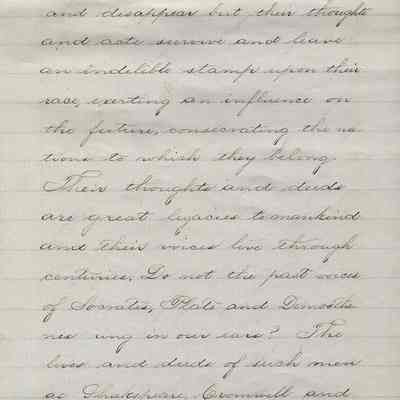 and disappear but their thoughts
and acts survive and leave
an indelible stamp upon their
race, exerting an influence on
the future, consecrating the na
tions to which they belong.
Their thoughts and deeds
are great legacies to mankind
and their voices live through
centuries, Do not the past voices
of Socrates, Plato and Demosthe
nes ring in our ears? The
lives and deeds of such men
as Shakspeare, Cromwell and